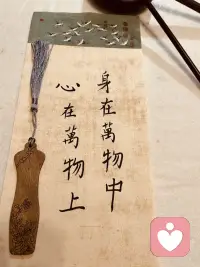 身在萬物中
心在萬物上